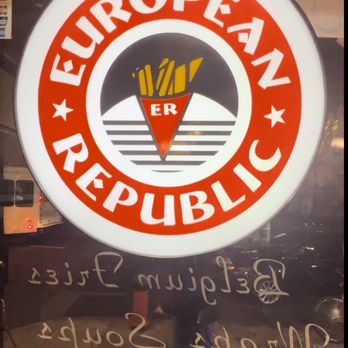 EUROPEAN
ER
REPUBLIC
Belgium Fries
Wraps Soups